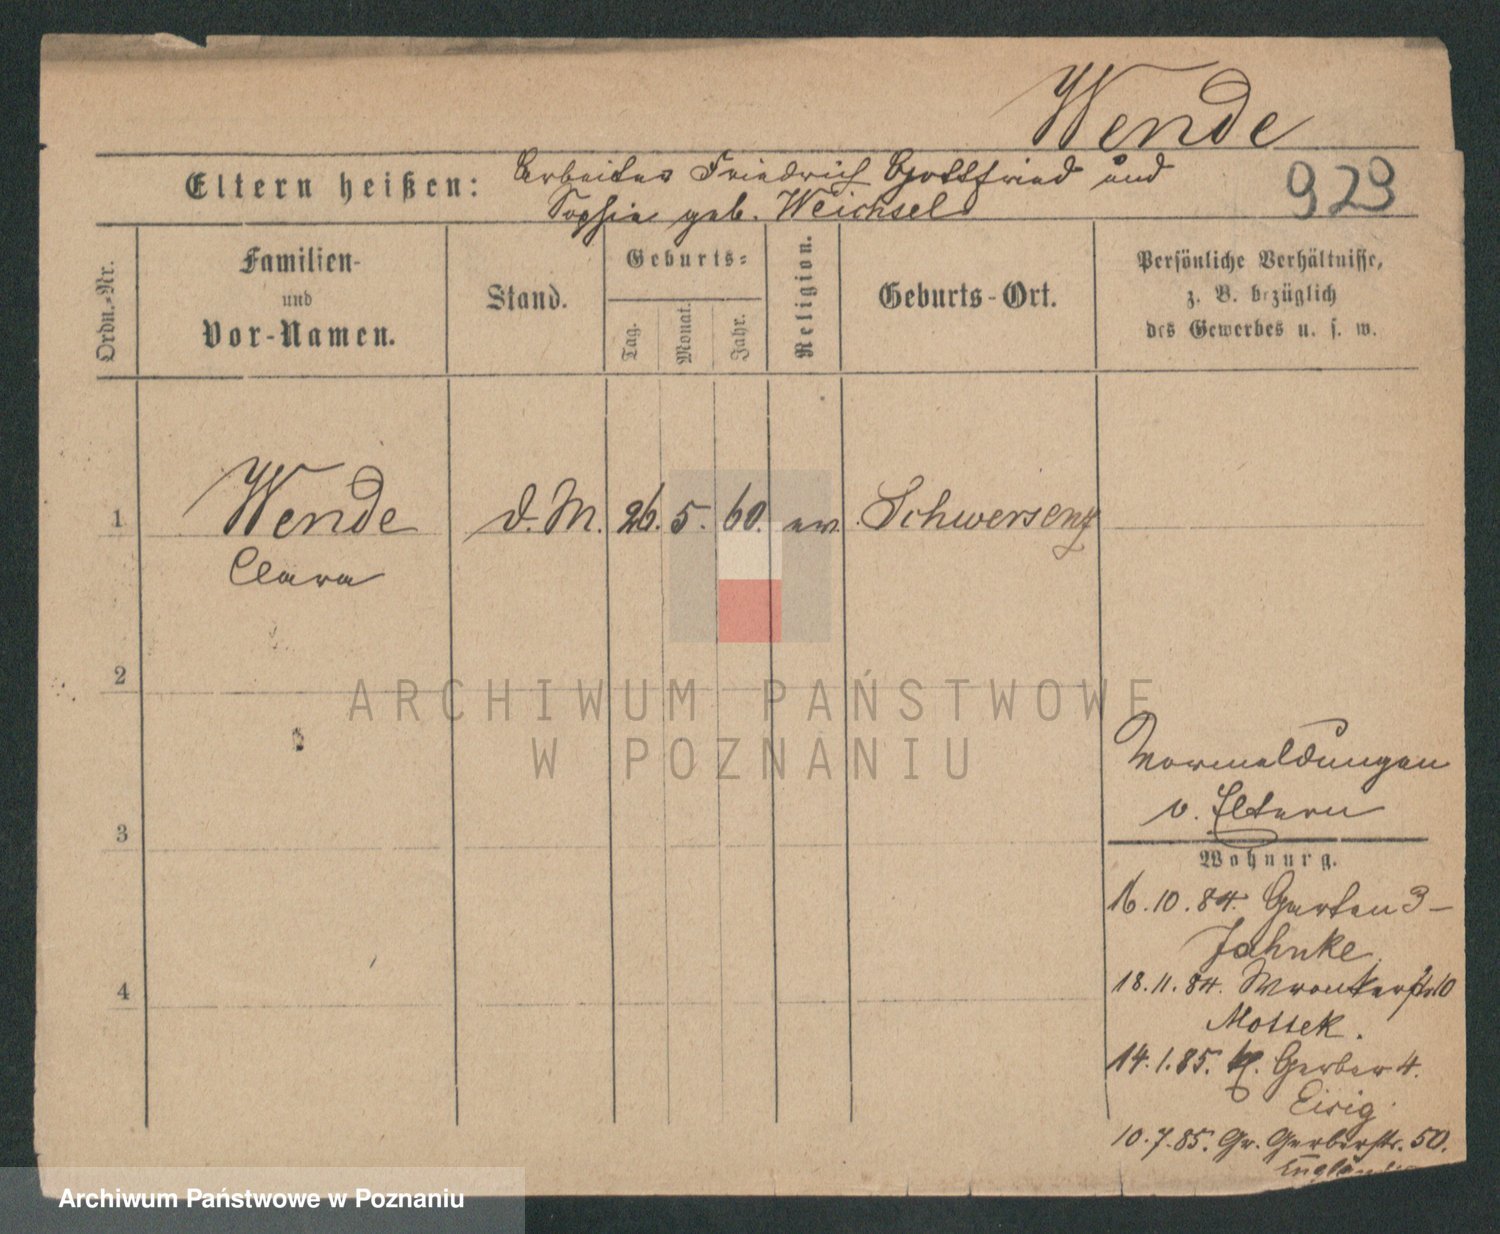 Wende
Eltern heißen: Arbeiter Friedrich Gottfried und
Sophie geb. Weichsel
929
Ordn.-Nr.
Familien-
und
Vor-Namen.
Stand.
Geburts-
Tag.
Monat.
Jahr.
Religion.
Geburts-Ort.
Persönliche Verhältnisse,
z. B. bezüglich
des Gewerbes u. s. w.
1 Wende d. M. 26. 5. 60. ev. Schwersenz
Clara
2
3
4
ARCHIWUM PAŃSTWOWE
W POZNANIU
Vormeldungen
v. Eltern
Wohnung.
16.10.84. Garten 3-
Jahnke
18.11.84. Wronkerstr 10
Mottek.
14.1.85. kl. Gerber 4.
Eisig
10.7.85. Gr. Gerberstr. 50.
Archiwum Państwowe w Poznaniu